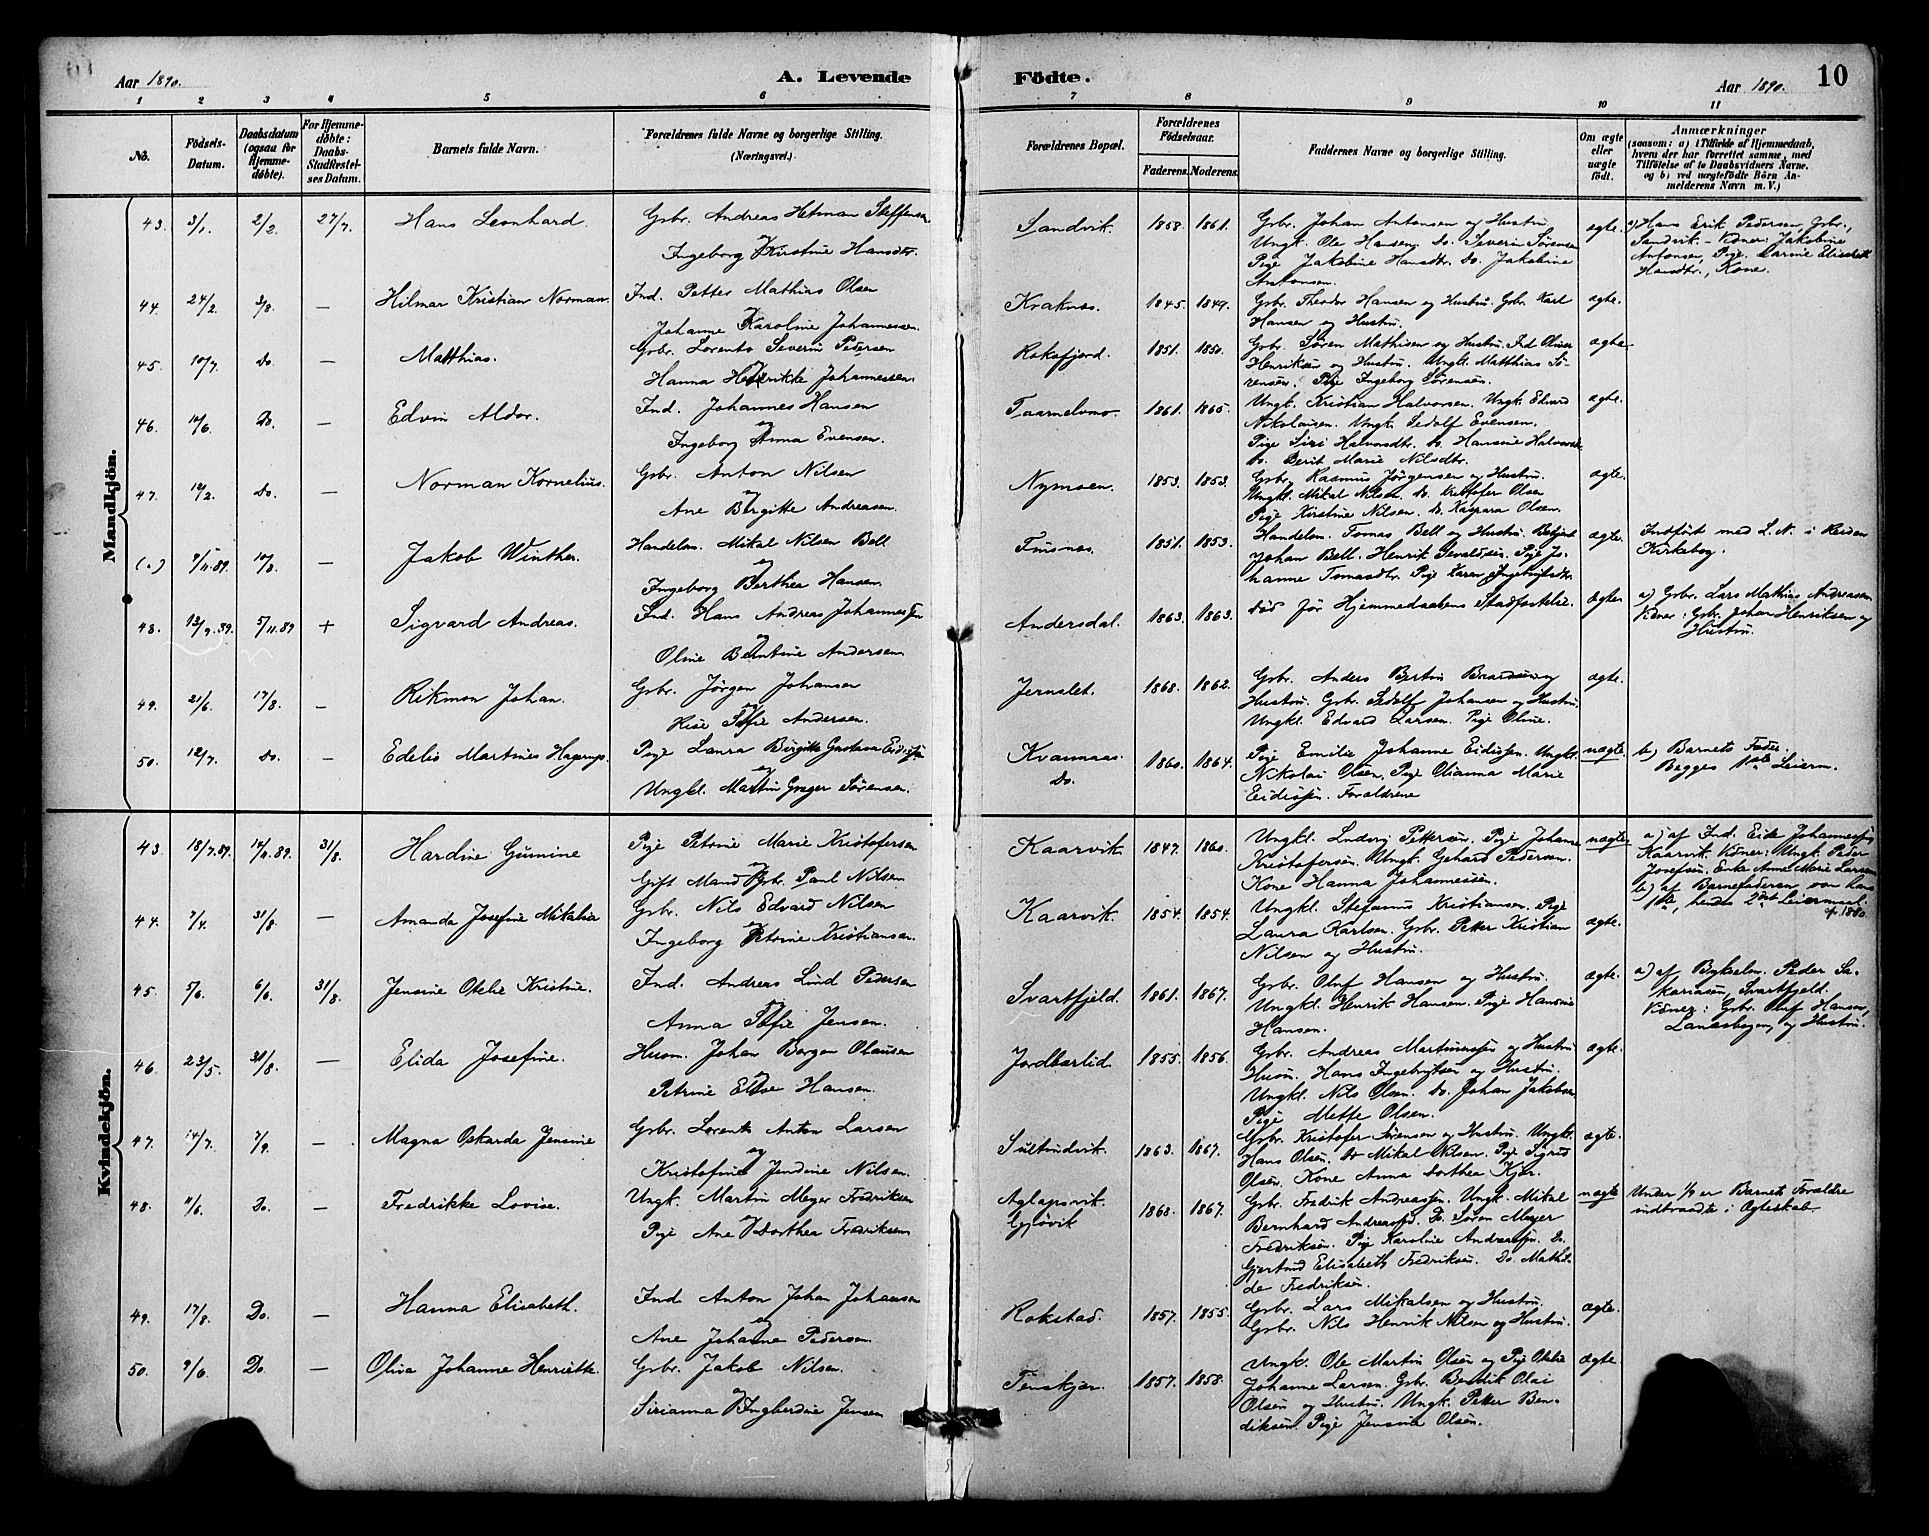 Aar 1890.
A. Levende
Födte.
Aar 1890.
10
1 2 3 4 5 6 7 8 9 10 11
No.
Födsels-
Datum.
Daabsdatum
(ogsaa for
Hjemme-
döbte).
For Hjemme-
döbte:
Daabs-
Stadfæstel-
ses Datum.
Barnets fulde Navn.
Forældrenes fulde Navne og borgerlige Stilling.
(Næringsvei.)
Forældrenes Bopæl.
Forældrenes
Födselsaar.
Faderens.
Moderens.
Faddernes Navne og borgerlige Stilling.
Om ægte
eller
uægte
födt.
Anmærkninger
(saasom: a) i Tilfælde af Hjemmedaab,
hvem der har forrettet samme, med
Tilföielse af to Daabsvidners Navne,
og b) ved uægtefödte Börn An-
melderens Navn m. V.)
Mandkjön.
43. 3/1. 2/2. 27/7. Hans Leonhard. Gbr. Andreas Hetman Steffensen
og
Ingeborg Kirstine Hansdtr.
Sandvik. 1858. 1861. Gbr. Johan Antonsen og Hustru
Ungk. Ole Hansen, Do. Severin Sørensen
Pige Jakobine Hansdtr. Do. Jakobine
Antonsen.
ægte.
a) Hans Erik Pedersen, Gbr.,
Sandvik. - Vidner: Jakobine
Antonsen, Pige. Karine Elisabeth
Hansdtr., Kone.
44. 24/2. 3/8. — Hilmar Kristian Norman. Ind. Petter Mathias Olsen
og
Johanne Karoline Johannessen.
Kraknæs. 1845. 1849. Gbr. Theodor Hansen og Hustru. Gbr. Karl
Hansen og Hustru.
ægte.
45. 10/7. Do. — Matthias. Gbr. Lorents Severin Pedersen
og
Hanna Henrikke Johannessen.
Roksfjord. 1851. 1850. Gbr. Søren Mathisen og Hustru. Ind. Oliver
Henriksen og Hustru. Ungk. Matthias Sø-
rensen. Pige Ingeborg Sørensen.
ægte.
46. 10/6. Do. — Edvin Aldor. Ind. Johannes Hansen
og
Ingeborg Anna Evensen.
Taarnelvmo. 1861. 1865. Ungk. Kristian Halvorsen. Ungk. Edvard
Nikolaisen. Ungk. Sedolf Evensen.
Pige Siri Halvorsdtr. Do Hansine Halvorsdtr
Do. Berit Marie Nilsdtr.
ægte.
47. 12/2. Do. — Norman Kornelius. Gbr. Anton Nilsen
og
Ane Birgitte Andreasen.
Nymoen. 1853. 1853. Gbr. Rasmus Jørgensen og Hustru.
Ungkl. Mikal Nilsen. Do. Kristofer Olsen
Pige Kirstine Nilsen. Do. Kaspara Olsen.
ægte.
9/11.89. 10/8. — Jakob Winther. Handelsm. Mikal Nilsen Bell
og
Ingeborg Berthea Hansen.
Finsnæs. 1851. 1853. Handelsm. Tomas Bell og Hustru.
Johan Bell. Henrik Sivaldsen. Pige Jo-
hanne Tomasdtr. Pige Karen
ægte.
Indført med L. N. i Reisen
Kirkebog.
48. 12/9.89. 5/11.89 + Sigvard Andreas. Ind. Hans Andreas Johannessen
og
Oline Berntine Andersen.
Andersdal. 1863. 1863. Død før Hjemmedaabens Stadfæstelse.
ægte.
a) Gbr. Lars Mathias Andreasen.
Vidner: Gbr. Johan Henriksen og
Hustru.
49. 21/6. 17/8. — Rikmon Johan. Gbr. Jørgen Johansen
og
Sofie Andersen.
Jernslet. 1868. 1862. Gbr. Anders og
Hustru. Gbr. Sedolf Johansen og Hustru.
Ungkl. Edvard Larsen. Pige Oline.
ægte.
50. 12/7. Do. — Edelio Martines Hagerup. Pige Laura Birgitte Gustava Eidissen
og
Ungkl. Martin Greger Sørensen.
Kvannaas.
Do.
1860. 1864. Pige Emilie Johanne Eidissen. Ungkl.
Nikolai Olsen. Pige Olianna Marie
Eidissen. Forældrene
uægte.
b) Barnets Fader.
Begges 1ste Leierm.
Kvindekjön.
43. 18/7.89. 14/11.89. 31/8. Hardine Gumine Pige Petrine Marie Kristofersen
og
Gift Mand Gbr. Paul Nilsen.
Kaarvik. 1847. 1860. Ungkl. Ludvig Pettersen. Pige Johanne
Kristofersen. Ungk. Gehard Pedersen.
Kone Hanna Johannessen.
uægte.
a) af Ind. Eide Johannessen,
Kaarvik. Vidner: Ungk. Peder
Josefsen. Enke Anne Marie Larsen
b) af Barnefaderen som hans
1ste, hendes 2det Leiermaal.
44. 7/4. 31/8. — Amanda Josefine Mikalia Gbr. Nils Edvard Nilsen
og
Ingeborg Petrine Kristiansen.
Kaarvik. 1854. 1854. Ungkl. Stefanus Kristiansen. Pige
Laura Karlsen. Gbr. Petter Kristian
Nilsen og Hustru.
ægte.
45. 5/6. 6/6. 31/8. Jensine Otelie Kristine. Ind. Andreas Lind Pedersen
og
Anna Sofie Jensen.
Svartfjeld. 1861. 1867. Gbr. Oluf Hansen og Hustru.
Ungkl. Henrik Hansen. Pige Hansine
Hansen.
ægte.
a) af Bykselm. Peder Za-
kariasen, Svartfjeld.
Vidner: Gbr. Oluf Hansen,
og Hustru.
46. 23/5. 31/8. — Elida Josefine. Husm. Johan Borgen Olausen
og
Petrine Hansen.
Jordbærlid. 1855. 1856. Gbr. Andreas Martinussen og Hustru
Husm. Hans Ingebrigtsen og Hustru.
Ungkl. Nils Olsen. Do. Johan Jakobsen.
Pige Mette Olsen.
ægte.
47. 14/7. 7/9. — Magna Oskarda Jensine Gbr. Lorents Anton Larsen
og
Kristofine Jendine Nilsen.
Sultindvik. 1863. 1867. Gbr. Kristofer Sørensen og Hustru. Ungkl.
Hans Olsen. Do Mikal Nilsen. Pige Sigrid
Olsen. Kone Anna Dorthea Kjær.
ægte.
48. 11/6. Do. — Fredrikke Lovise. Ungk. Martin Meyer Fredriksen
og
Pige Ane Dorthea Fredriksen
Aglapsvik.
Gjøvik
1868. 1867. Gbr. Fredrik Andreassen. Ungk. Mikal
Bernhard Andreassen. Do. Søren Meyer
Fredriksen. Pige Karoline Andreassen. Do.
Gjertrud Elisabeth Fredriksen. Do. Mathil-
de Fredriksen.
uægte
Under 1/9 er Barnets Forældre
indtraadte i Ægteskab.
49. 17/8. Do. — Hanna Elisabeth. Ind. Anton Johan Johansen
og
Ane Johanne Pedersen.
Rokstad. 1857. 1855. Gbr. Lars Mikalsen og Hustru.
Gbr. Nils Henrik Nilsen og Hustru.
ægte.
50. 9/6. Do. — Oliva Johanne Henriette Gbr. Jakob Nilsen.
og
Sirianna Ingberdine Jensen
Tenskjær. 1857. 1858. Ungk. Ole Martin Olsen og Pige Otelie
Johanne Larsen. Gbr. Bendik Olai
Olsen og Hustru. Ungk. Petter Ben-
diksen. Pige Jensine Olsen.
ægte.